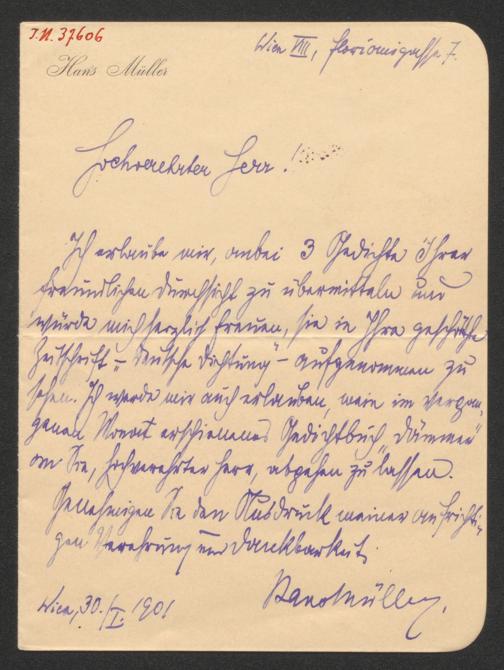 I.N. 37606
Wien VIII, Florianigasse 7.
Hans Müller
Hochverehrter Herr!
Ich erlaube mir, anbei 3 Gedichte Ihrer
freundlichen Durchsicht zu übermitteln und
würde mich herzlich freuen, sie in Ihrer geschätzten
Zeitschrift – "Deutsche Dichtung" – aufgenommen zu
sehen. Ich werde mir auch erlauben, mein im vergan-
genen Monat erschienenes Gedichtbuch "Dämmer"
an Sie, hochverehrter Herr, abgehen zu lassen.
Genehmigen Sie den Ausdruck meiner aufrichti-
gen Verehrung und Dankbarkeit.
Hans Müller.
Wien, 30./I. 1901